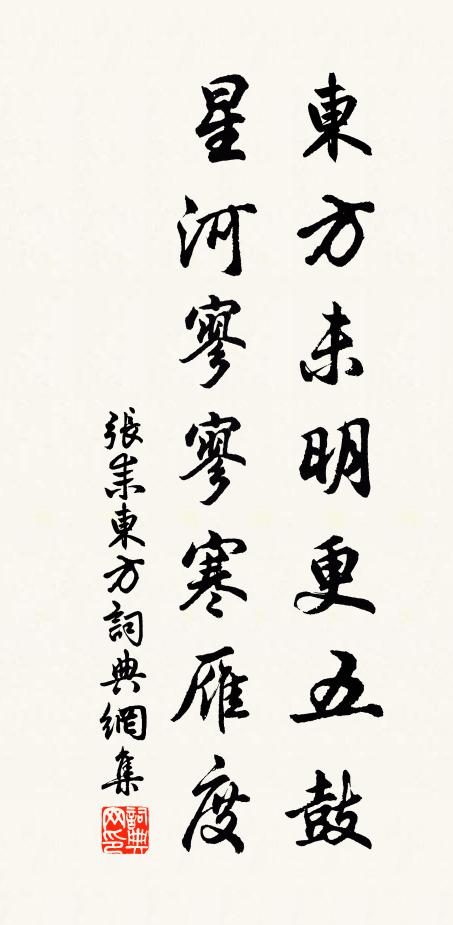 東方未明更五鼓
星河寥寥寒雁度
張耒東方詞典網集
詞典
网印